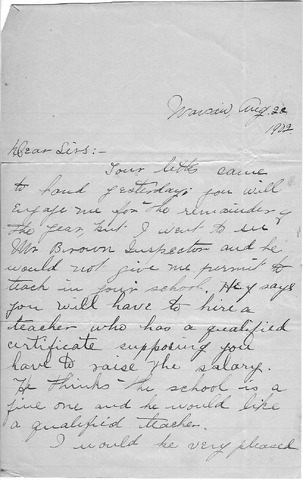 Aug. 22
1922
Dear Sirs:-
Your letter came
to hand yesterday; you will
engage me for the remainder of
the year, but I went to see
Mr Brown Inspector and he
would not give me permit to
teach in your school. He says
you will have to hire a
teacher who has a qualified
certificate supposing you
have to raise the salary.
He thinks the school is a
fine one and he would like
a qualified teacher.
I would be very pleased